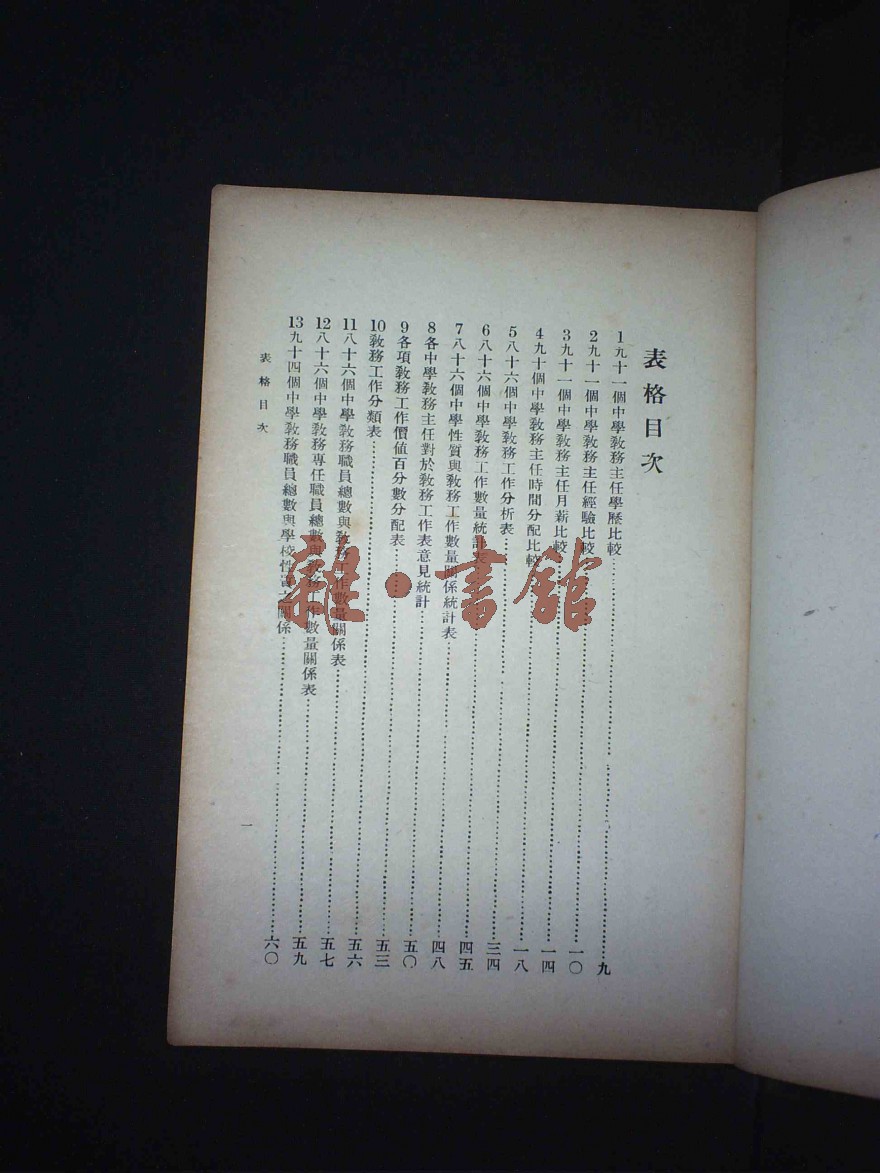 表格目次
1 九十一個中學教務主任學歷比較……九
2 九十一個中學教務主任經驗比較……一〇
3 九十一個中學教務主任月薪比較……一四
4 九十個中學教務主任時間分配比較……一八
5 八十六個中學教務工作分析表……三四
6 八十六個中學教務工作數量統計表……四五
7 八十六個中學性質與教務工作數量關係統計表……四八
8 各中學教務主任對於教務工作表意見統計……五〇
9 各項教務工作價值百分數分配表……五三
10 教務工作分類表……五六
11 八十六個中學教務職員總數與教務工作數量關係表……五七
12 八十六個中學教務專任職員總數與教務工作數量關係表……五九
13 九十四個中學教務職員總數與學校性質之關係……六〇
表格目次
一
雜·書館